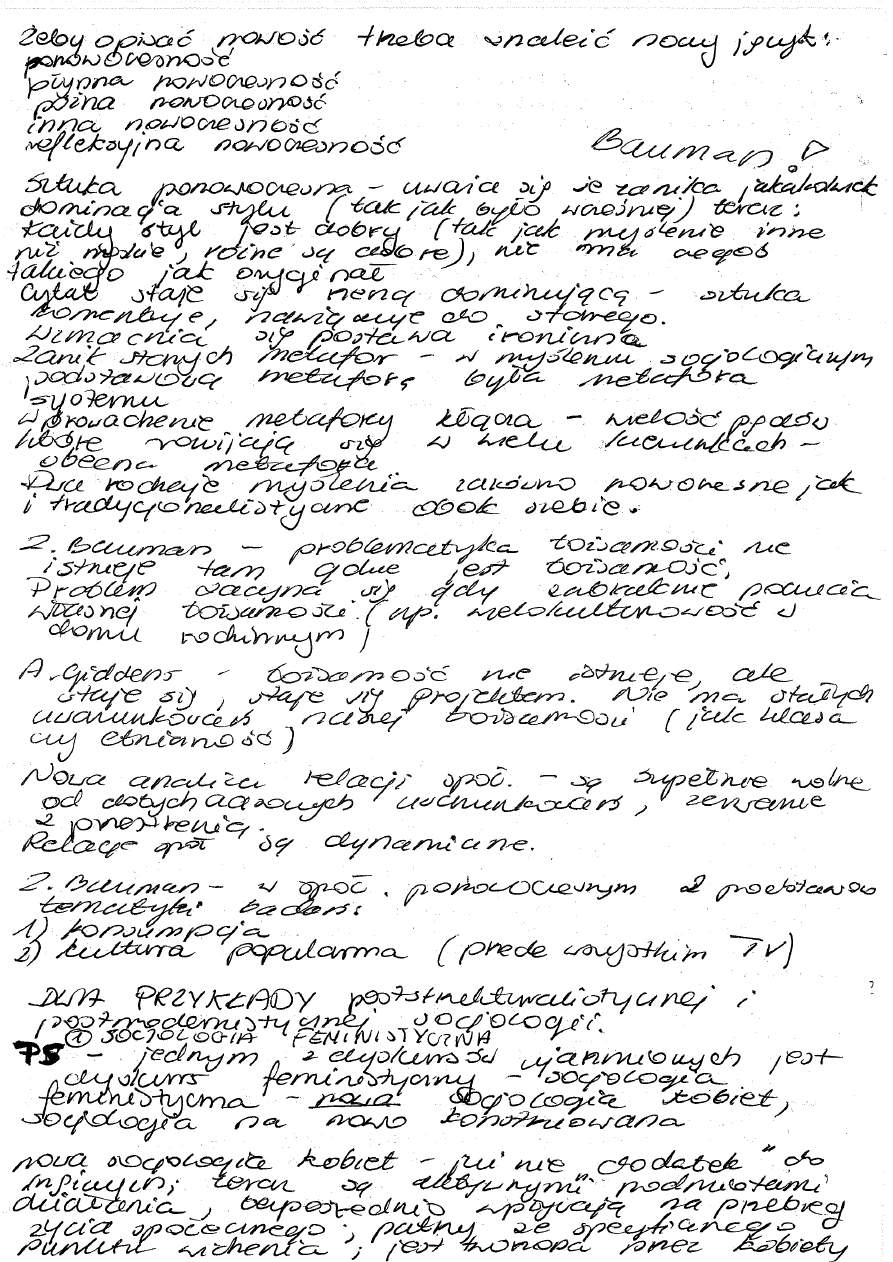 Żeby opisać nowość trzeba znaleźć nowy język:
ponowoczesność
płynna nowoczesność
późna nowoczesność
inna nowoczesność
refleksyjna nowoczesność
Bauman!
Sztuka ponowoczesna - uważa się że zanika jakakolwiek
dominacja stylu (tak jak było wcześniej) teraz:
każdy styl jest dobry (tak jak myślenie inne
niż męskie, różne są dobre), nie ma czegoś
takiego jak oryginał
Cytat staje się ceną dominującą - sztuka
komentuje, nawiązuje do starego.
Wzmacnia się postawa ironiczna
Zanik starych metafor - w myśleniu socjologicznym
podstawową metaforą była metafora
systemu
Wprowadzenie metafory kłącza - wielość pędów
które rozwijają się w wielu kierunkach -
obecna metafora
Dwa rodzaje myślenia zarówno nowoczesne jak
i tradycjonalistyczne obok siebie.
Z. Bauman - problematyka tożsamości nie
istnieje tam gdzie jest tożsamość.
Problem zaczyna się gdy zabraknie poczucia
własnej tożsamości (np. wielokulturowość w
domu rodzinnym)
A. Giddens - tożsamość nie istnieje, ale
staje się, staje się projektem. Nie ma stałych
uwarunkowań naszej tożsamości (jak klasa
czy etniczność)
Nowa analiza relacji społ. - są zupełnie wolne
od dotychczasowych uwarunkowań, zerwanie
z przestrzenią.
Relacje społ są dynamiczne.
Z. Bauman - w społ. ponowoczesnym 2 podstawowe
tematyki badań:
1) konsumpcja
2) kultura popularna (przede wszystkim TV)
DWA PRZYKŁADY poststrukturalistycznej i
postmodernistycznej socjologii.
① SOCJOLOGIA FEMINISTYCZNA
PS - jednym z dyskursów ujawnionych jest
dyskurs feministyczny - socjologia
feministyczna - nowa socjologia kobiet,
socjologia na nowo konstruowana
nowa socjologia kobiet - już nie "dodatek" do
mężczyzn; teraz są aktywnymi podmiotami
działania, bezpośrednio wpływają na przebieg
życia społecznego; patrzy ze specyficznego
punktu widzenia; jest tworzona przez kobiety